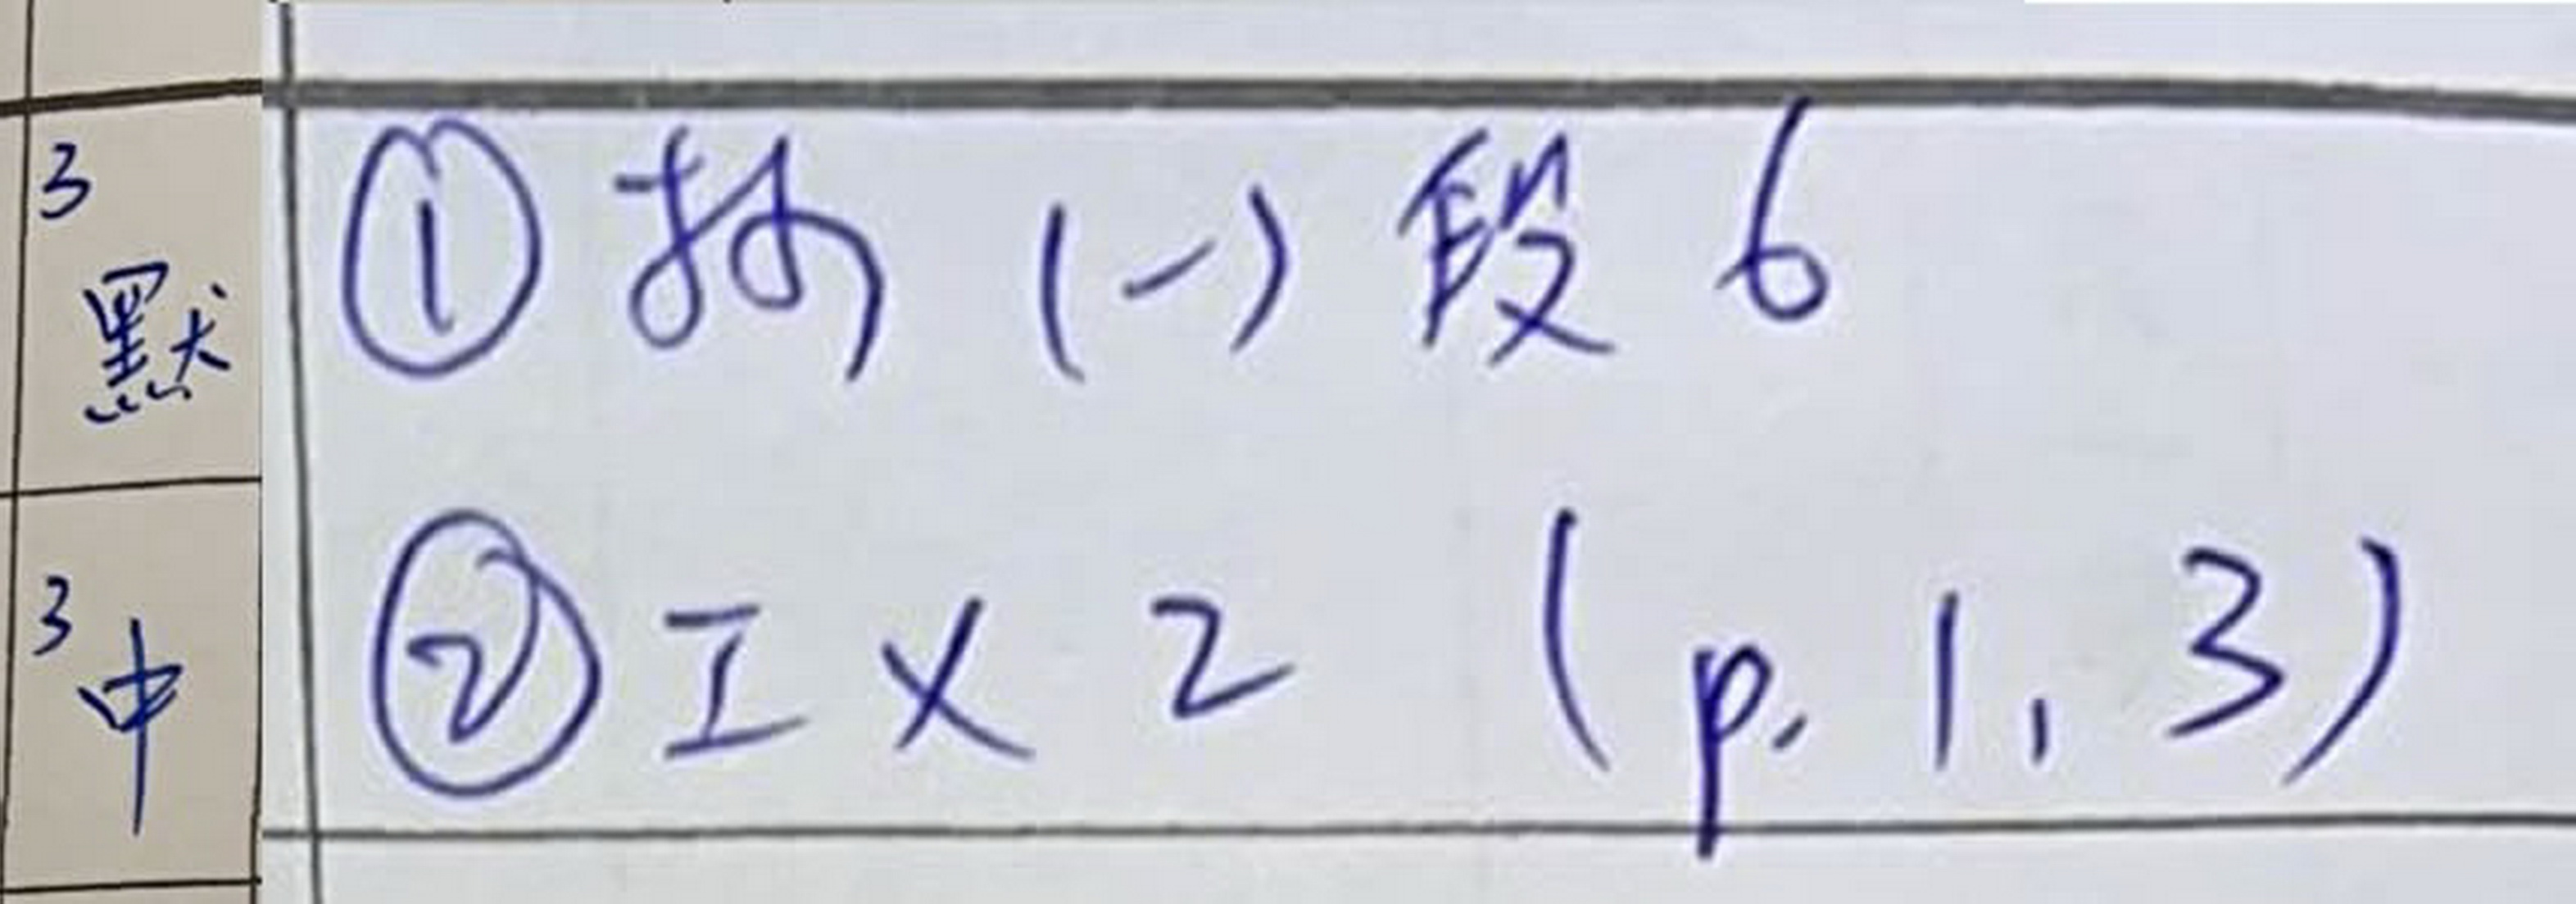 3 默
① (一) 段 6
3 中
② 工 × 2 (p. 1, 3)